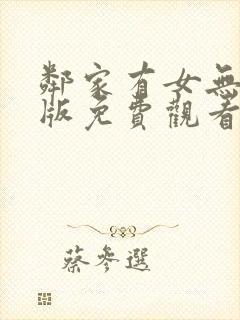 鄰家有女無
版免費觀看
蔡參選